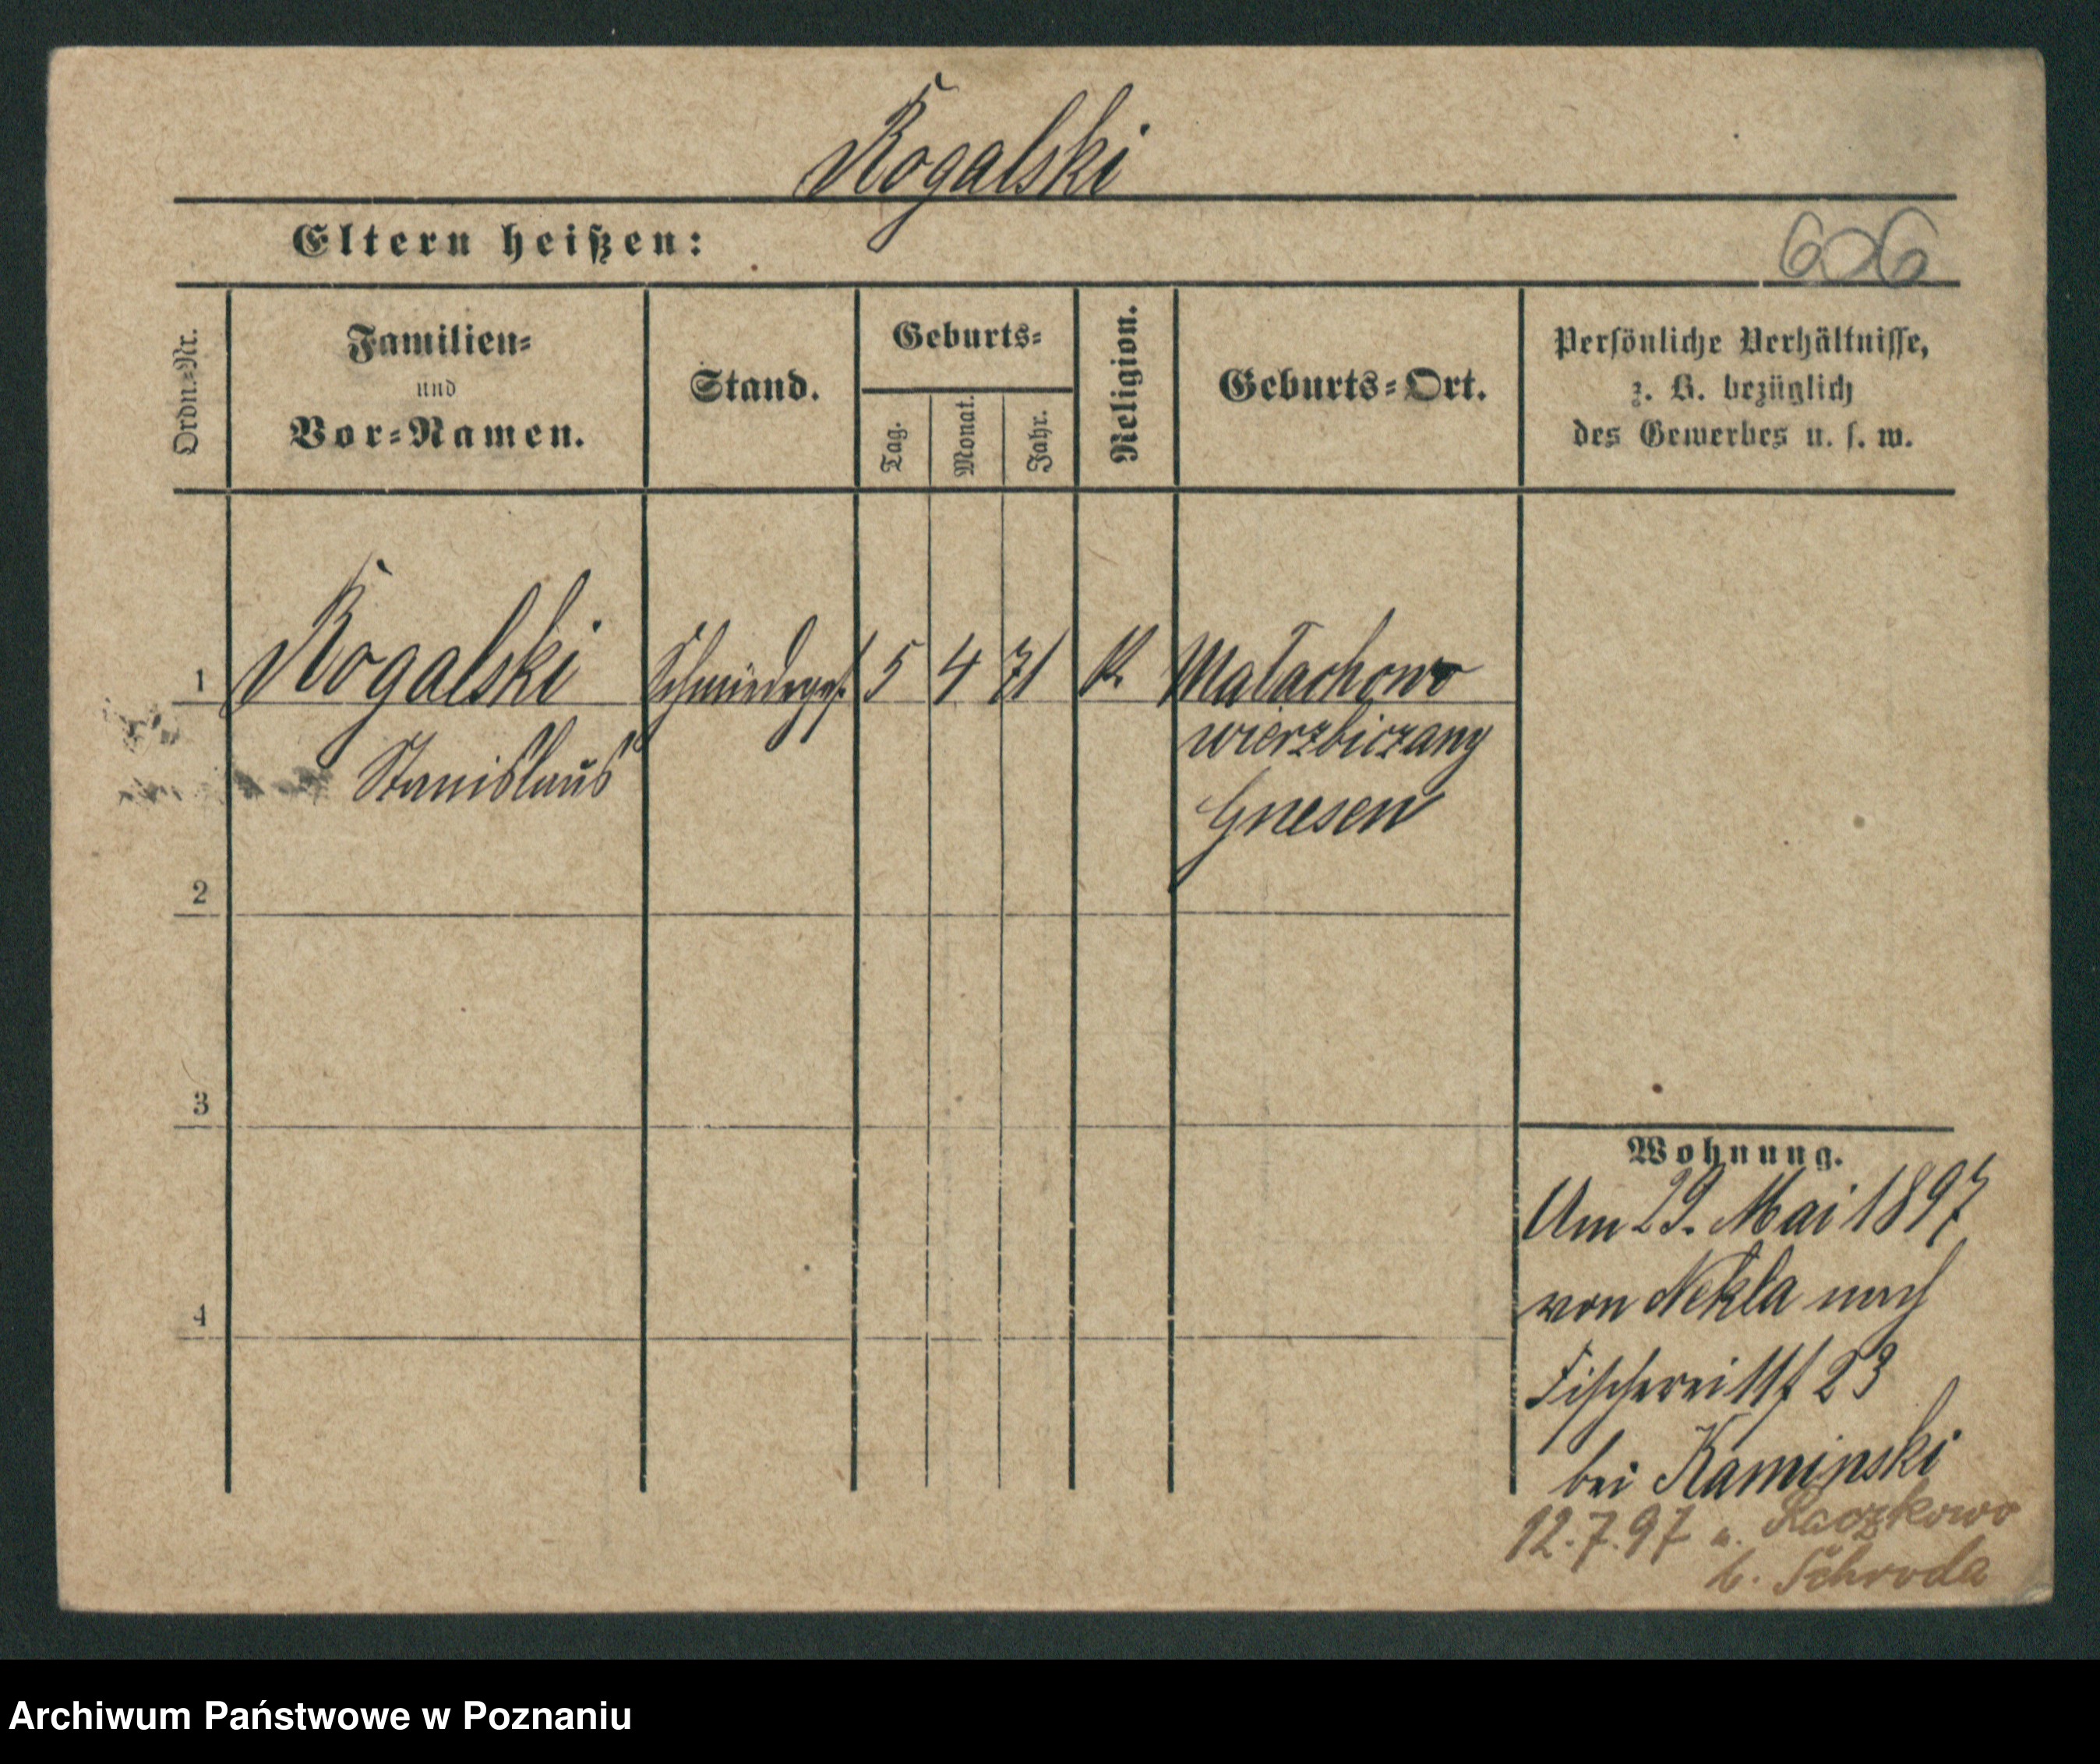 Rogalski
Eltern heißen:
606
Ordn.-Nr.
Familien-
und
Vor-Namen.
Stand.
Geburts-
Tag.
Monat.
Jahr.
Religion.
Geburts-Ort.
Persönliche Verhältnisse,
z. B. bezüglich
des Gewerbes u. s. w.
1 Rogalski Schmiedeges. 5 4 71 K. Małachowo
Stanislaus wierzbiczany
Gnesen
2
3
4
Wohnung.
Am 29. Mai 1897
von Nekla nach
Fischerei 23
bei Kaminski
12.7.97 n. Raczkowo
b. Schroda
Archiwum Państwowe w Poznaniu